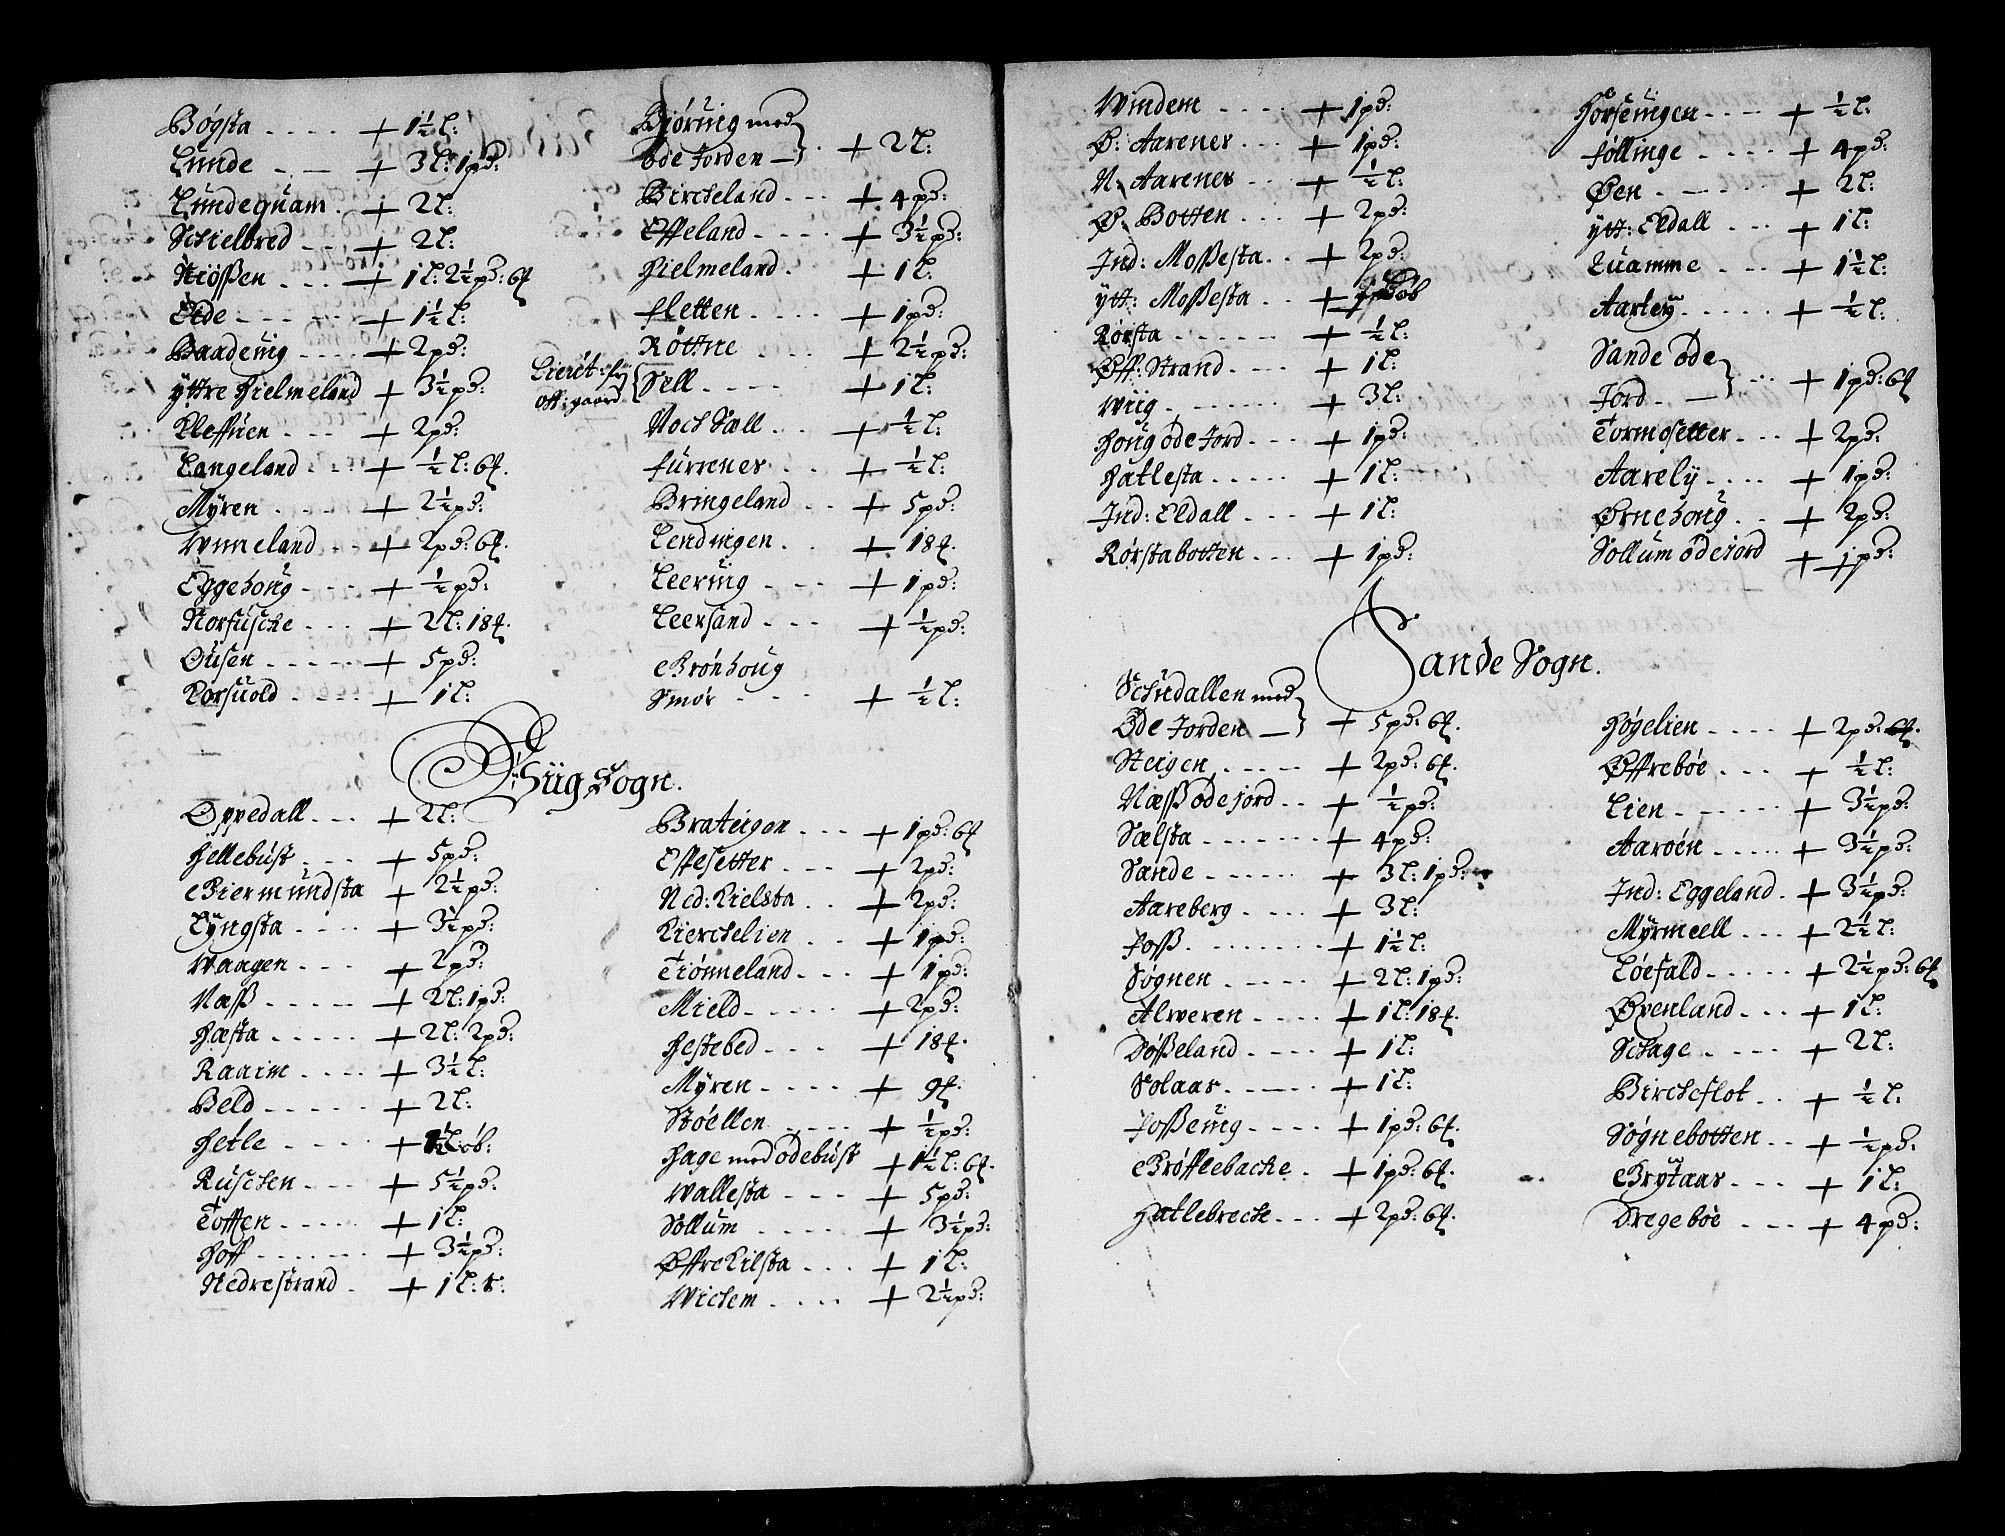 Bøgsta - - - - + 1½ l:
Lunde - - - + 3 l: 1 pd:
Lundequam - + 2 l:
Schielbred - - + 2 l:
Niössen - - - + 1 l: 2½ pd: 6 ℔
Elde - - - - - + 1½ l:
Baadevig - - - + 2 pd:
Yttre Hielmeland + 3½ pd:
Kleffuen - - - + 2 pd:
Langeland - - + ½ l: 6 ℔.
Myren - - - - + 2½ pd:
Winneland - - + 2 pd: 6 ℔.
Eggehoug - - - + ½ pd:
Norsusche - - - + 2 l: 18 ℔.
Ousen - - - - - + 5 pd:
Korsuold - - - - + 1 l:
Bjøruig med
Øde Jorden — + 2 l:
Bircheland - - - + 4 pd:
Effeland - - - - + 3½ pd:
Hielmeland - + 1 l:
Fletten - - - - + 1 pd:
Röttne - - - + 2½ pd:
Sell - - - - + 1 l:
Noch Sæll - - - + ½ l:
Furrener - - + ½ l:
Bringeland - - + 5 pd:
Lendingen - + 18 ℔.
Leeruig - - - + 1 pd:
Leersand - - - + ½ pd:
Grönhoug
Smør - - - + ½ l:
Bÿig Sogn.
Oppedall - - - + 2 l:
Hellebust - - - + 5 pd:
Giermundsta + 2½ pd:
Lyngsta - - - - + 3½ pd:
Waagen - - - + 2 pd:
Næss - - - - - + 2 l: 1 pd:
Hæsta - - - - - + 2 l: 2 pd:
Raaim - - - - + 3½ l:
Beld - - - - - + 2 l:
Hetle - - - - + 1½ l: öb:
Ruschen - - - + 5½ pd:
Toffen - - - - - + 1 l:
Hoff - - - - - - + 3½ pd:
Nedrestrand - + 1 l:
Brateigen - - - + 1 pd: 6 ℔
Espesetter - - - + 2 pd:
Ned: Kielsta - - + 2 pd:
Kierchelien - - + 1 pd:
Tiönneland - - - + 1 pd:
Mield - - - - - + 2 pd:
Hestebed - - - + 18 ℔.
Myren - - - - + 9 ℔.
Støellen - - - - + ½ pd:
Hage med ødebust + 1½ l: 6 ℔.
Wallesta - - - + 5 pd:
Sollum - - - - + 3½ pd:
Øffre Kilsta - - - + 1 l:
Wichem - - - - + 2½ pd:
Windem - - - - + 1 pd:
Ø: Aarener - - - + 1 pd:
N: Aarener - - + ½ l:
Ø: Botten - - - + 2 pd:
Ind: Mossesta - - + 2 pd:
ytt: Mossesta - - +
Rorsta - - - - - - + ½ l:
Øff: Strand - - - + 1 l:
Wiig - - - - - - + 3 l:
Houg øde Jord - - - + 1 pd:
Hatlesta - - - - - + 1 l:
Ind: Eldall - - - + 1 l:
Rörstabotten - - + 1 pd:
Horseuigen - - - + ½ l:
Föllinge - - - - + 4 pd:
Øen - - - - - - + 2 l:
ytt: Eldall - - - + 1 l:
Quamme - - - - + 1½ l:
Aarley - - - - - + ½ l:
Sande øde
Jord - — + 1 pd: 6 ℔
Tormosetter - - - + 2 pd:
Aarely - - - - + 1 pd:
Ørnehoug - - + 2 pd:
Sollum ödejord + 1 pd:
Sande Sogn.
Schudallen med
Øde Jorden — + 5 pd: 6 ℔.
Steigen - - - - - + 2 pd: 6 ℔.
Næss ödejord - - + ½ pd:
Sælsta - - - - - - + 4 pd:
Sande - - - - - - + 3 l: 1 pd:
Aareberg - - - - + 3 l:
Foss - - - - - - - + 1½ l:
Søgnen - - - - - + 2 l: 1 pd:
Alweren - - - - + 1 l: 18 ℔.
Dösseland - - - - + 1 l:
Solaar - - - - + 1 l:
Fosseuig - - - - + 1 pd: 6 ℔.
Gröfflebacke - + 1 pd: 6 ℔.
Hatlebrech - - - + 2 pd: 6 ℔.
Høgelien - - - - + 2 pd: 6 ℔.
Øffrebøe - - - + ½ l:
Lien - - - - - - + 3½ pd:
Aaröen - - - - - + 3½ pd:
Ind: Eggeland - + 3½ pd:
Myrmeell - - - + 2½ l:
Löefald - - - - - + 2½ pd: 6 ℔
Øvenland - - - + 1 l:
Schage - - - - + 2 l:
Bircheflot - - + ½ l:
Søgnebotten - - + ½ pd:
Grytaar - - - + 1 l:
Dregebøe - - - + 4 pd: